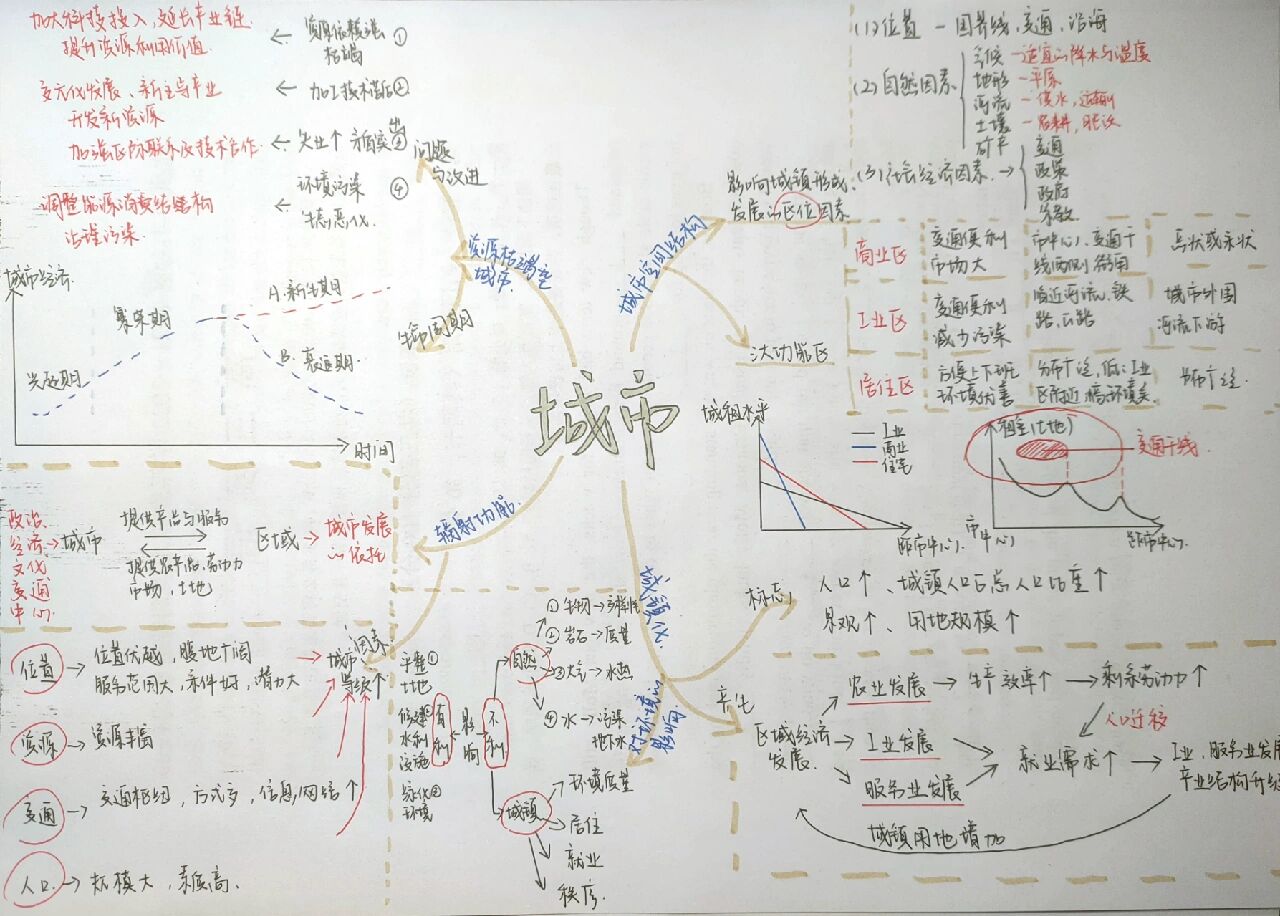 城市
资源枯竭型
城市
问题
与改进
资源依赖强 ①
枯竭
加大科技投入,延长产业链
提升资源利用价值
加工技术落后 ②
多元化发展、新主导产业
开发新资源
失业↑ 矛盾突出 ③
加强区际联系及技术合作
环境污染 ④
生态恶化
调整能源消费结构
治理污染
生命周期
城市经济
兴起期
繁荣期
A.新生期
B.衰退期
时间
城市空间结构
影响城镇形成、
发展的区位因素
(1)位置 - 国界线,交通,沿海
(2)自然因素
气候-适宜的降水与温度
地形-平原
河流-供水,运输
土壤
矿产
(3)社会经济因素→
交通
政策
政府
宗教
三大功能区
商业区
交通便利
市场大
市中心、交通干
线两侧
工业区
交通便利
减少污染
临近河流、铁
路、公路
城市外围
河流下游
居住区
方便上下班
环境优美
分布广泛
地租水平
工业
商业
住宅
距市中心
租金(土地)
交通干线
市中心
距市中心
辐射功能
政治、
经济、
文化
交通
中心
→城市
提供产品与服务
提供农产品、劳动力
市场,土地
区域→
城市发展
的依托
城市
等级↑
因素
位置→
位置优越,腹地广阔
服务范围大,条件好,潜力大
资源→资源丰富
交通→交通枢纽,方式多,信息网络↑
人口→规模大,素质高.
城镇化
标志
人口↑、城镇人口占总人口比重↑
景观↑、用地规模↑
产生
区域经济
发展
农业发展→生产效率↑→剩余劳动力↑
人口迁移
工业发展
服务业发展
就业需求↑→
工业,服务业发展
产业结构升级
城镇用地增加
对环境的
影响
影响
有利
平整①
土地
修建
水利
设施
绿化
环境
不利
自然
①生物→多样性
②岩石→质量
③大气→水热
④水→污染
地下水
城镇
环境质量
居住
就业
秩序